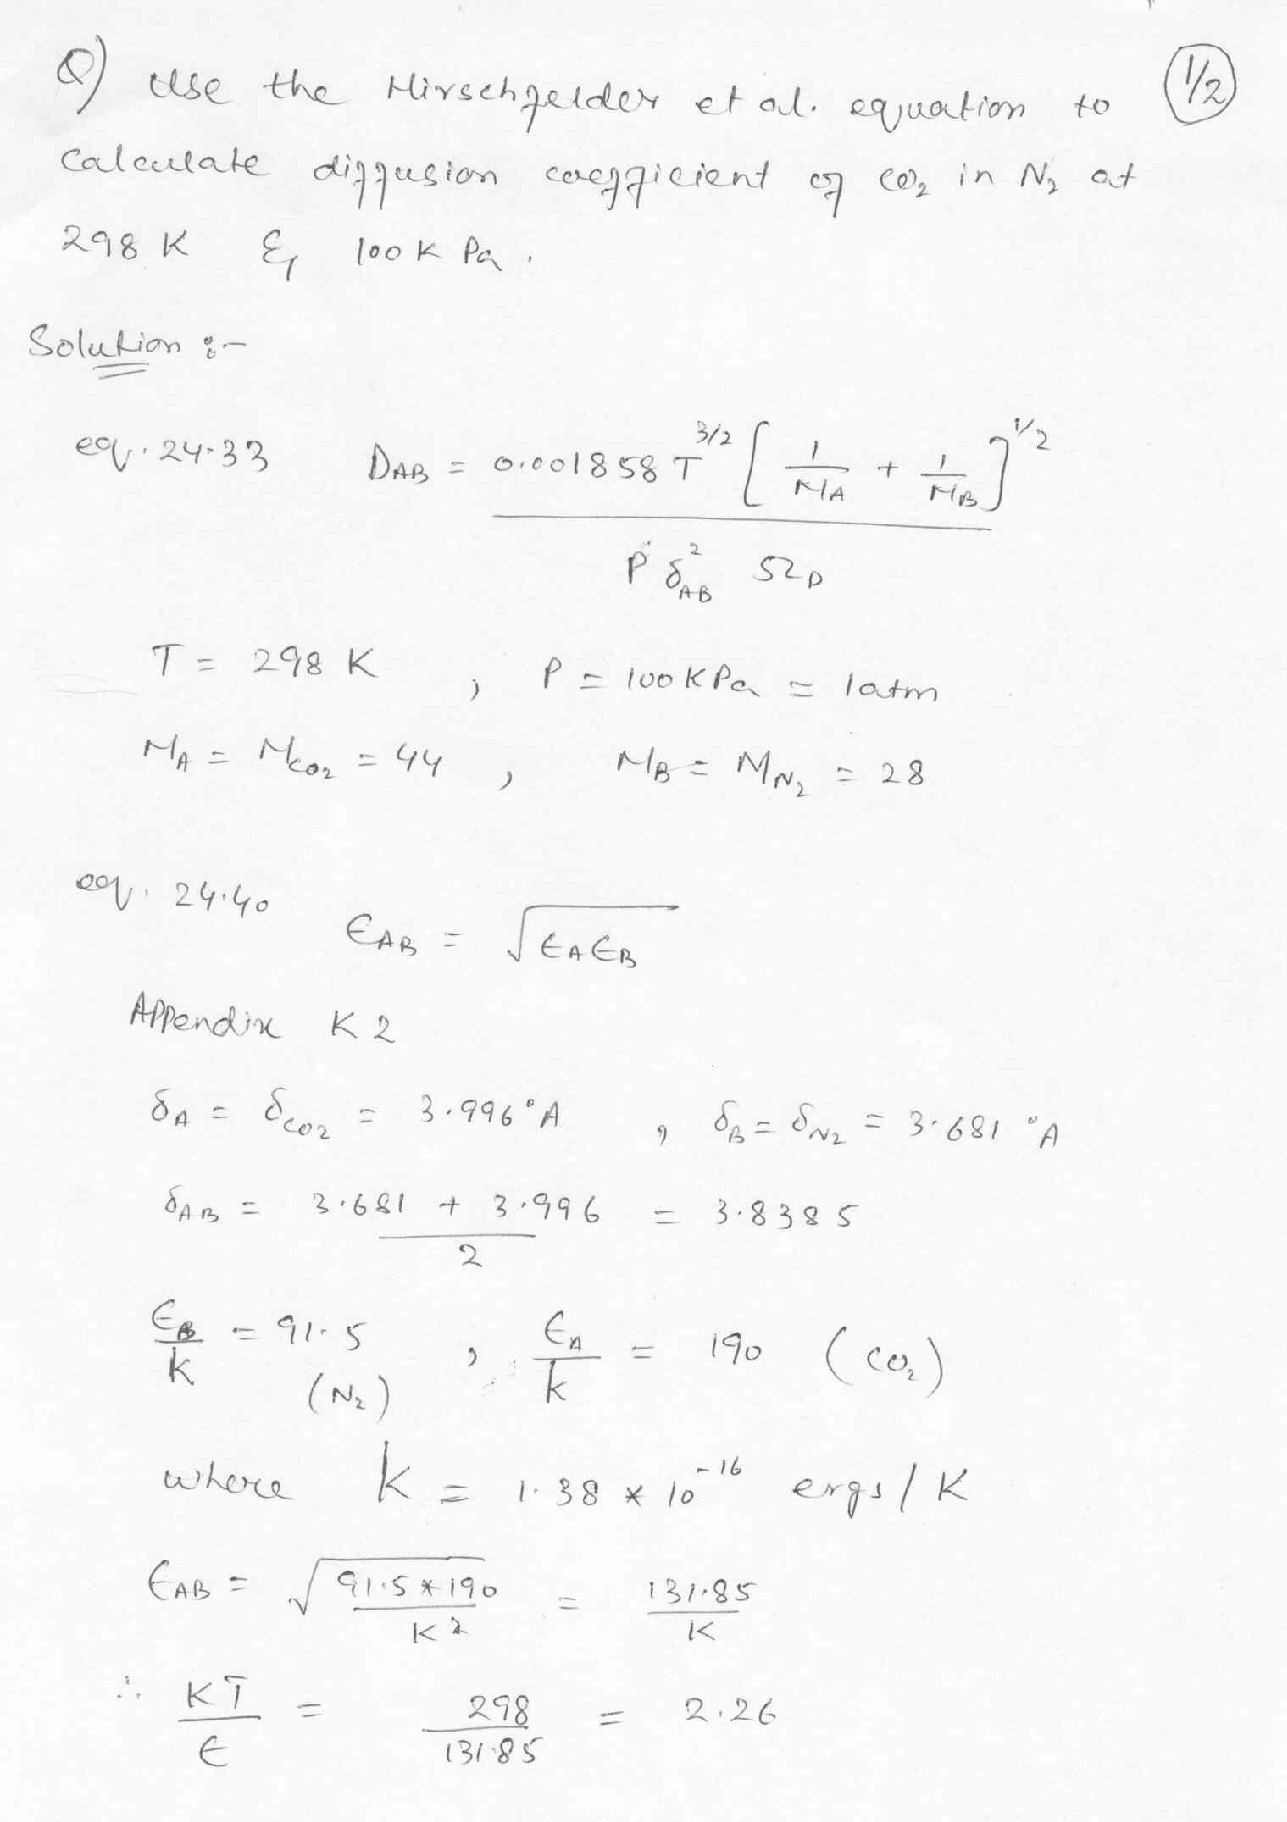 Q) Use the Hirschfelder et al. equation to
1/2
Calculate diffusion coefficient of CO2 in N2 at
298 K & 100 k Pa.
Solution :-
eq. 24.33 DAB = 0.001858 T^3/2 [ 1/MA + 1/MB ]^1/2
P δ²AB ΩD
T = 298 K , P = 100 KPa = 1atm
MA = MCO2 = 44 , MB = MN2 = 28
eq. 24.40 ЄAB = √ЄAЄB
Appendix K2
δA = δCO2 = 3.996°A , δB = δN2 = 3.681 °A
δAB = 3.681 + 3.996 / 2 = 3.8385
ЄB/k = 91.5 (N2) , ЄA/k = 190 (CO2)
where k = 1.38 * 10^-16 ergs/K
ЄAB = √91.5*190/K2 = 131.85/K
∴ KT/Є = 298/131.85 = 2.26